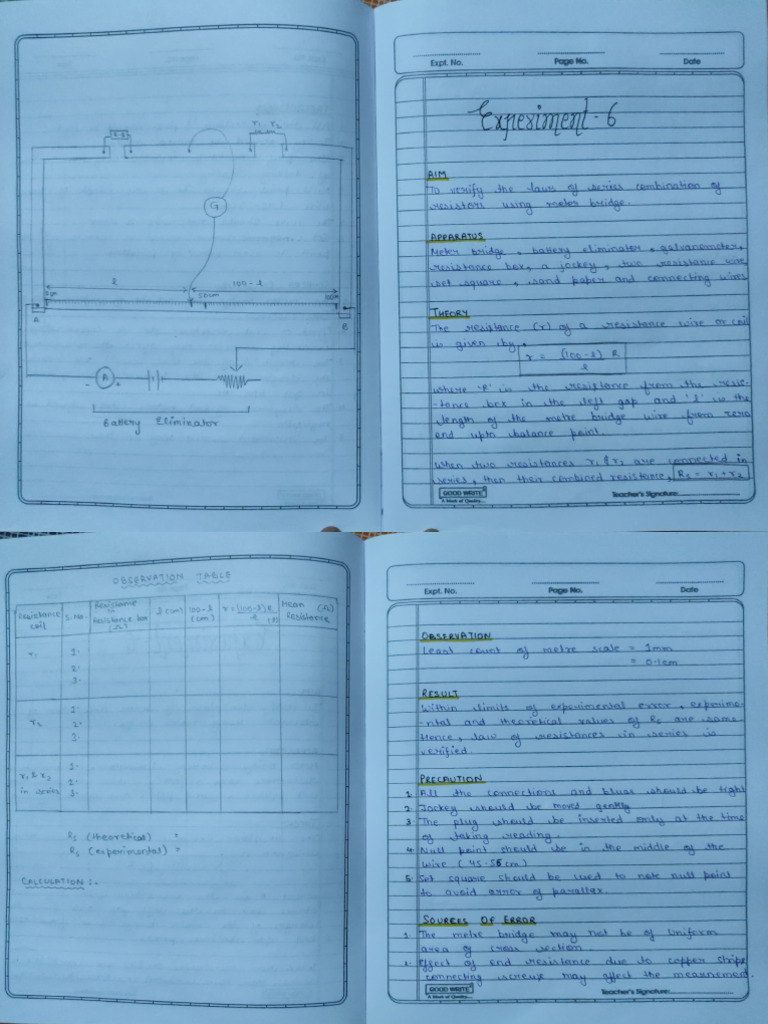 R.B
r₁ r₂
G
l
100-l
0cm
50cm
100
A
B
- A +
Battery Eliminator
Expt. No.
Page No.
Date
Experiment - 6
AIM
To verify the laws of series combination of
resistors using meter bridge.
APPARATUS
Meter bridge, battery eliminator, galvanometer,
resistance box, a jockey, two resistance wire,
set square, sand paper and connecting wires
THEORY
The resistance (r) of a resistance wire or coil
is given by,
r = (100-l) R / l
where 'R' is the resistance from the resis-
-tance box in the left gap and 'l' is the
length of the metre bridge wire from zero
end upto balance point.
When two resistances r₁ & r₂ are connected in
series, then their combined resistance, Rs = r₁ + r₂
GOOD WRITE
A Mark of Quality...
Teacher's Signature:
OBSERVATION TABLE
Resistance coil | S.No. | Resistance in resistance box (Ω) | l (cm) | 100-l (cm) | r = (100-l) R / l (Ω) | Mean Resistance (Ω)
r₁
1.
2.
3.
r₂
1.
2.
3.
r₁ & r₂ in series
1.
2.
3.
Rs (theoretical) =
Rs (experimental) =
CALCULATION :-
Expt. No.
Page No.
Date
OBSERVATION
Least count of metre scale = 1mm
= 0.1cm
RESULT
Within limits of experimental error, experime-
-ntal and theoretical values of Rs are same.
Hence, law of resistances in series is
verified.
PRECAUTION
1. All the connections and blugs should be tight
2. Jockey should be moved gently
3. The plug should be inserted only at the time
of taking reading.
4. Null point should be in the middle of the
wire (45-55cm)
5. Set square should be used to note null point
to avoid error of parallax.
SOURCES OF ERROR
1. The metre bridge may not be of uniform
area of cross section.
2. Effect of end resistance due to copper strips
connecting screws may affect the measurement.
GOOD WRITE
A Mark of Quality...
Teacher's Signature: